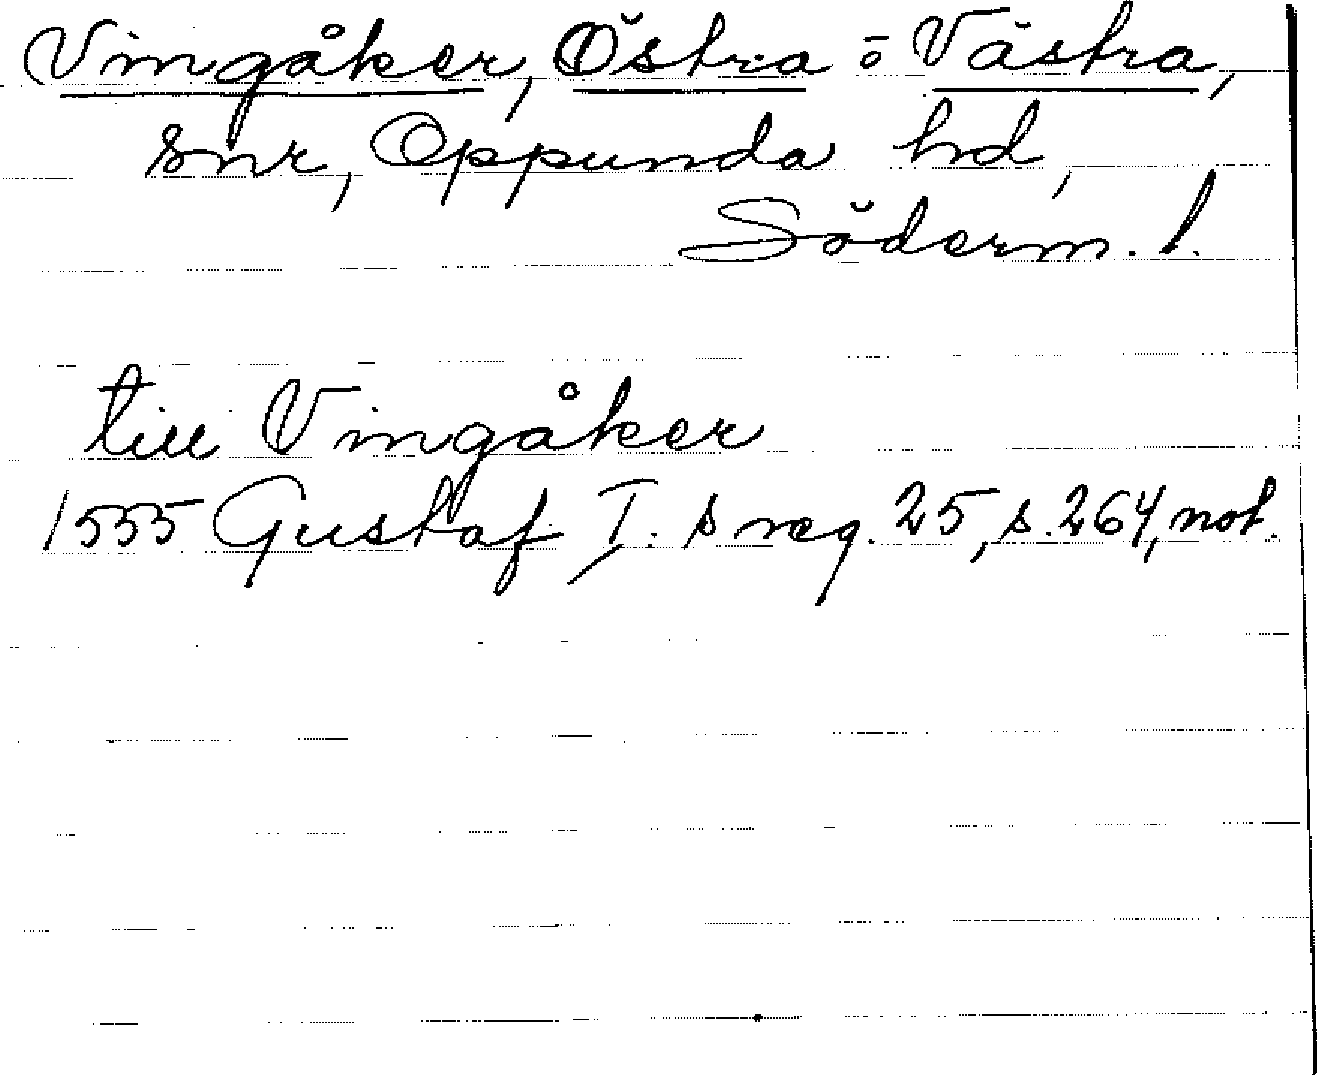 Vingåker, Östra o Västra,
snr, Oppunda hd,
Söderm. l.
till Vingåker
1555 Gustaf I. s reg. 25, s. 264, not.